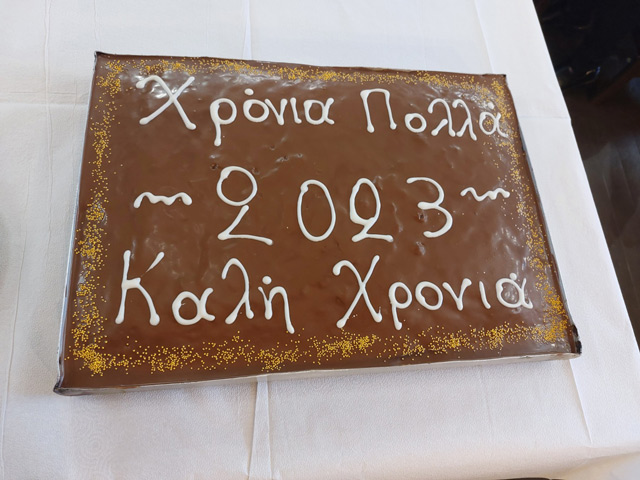 Χρόνια Πολλά
~ 2023 ~
Καλή Χρονιά